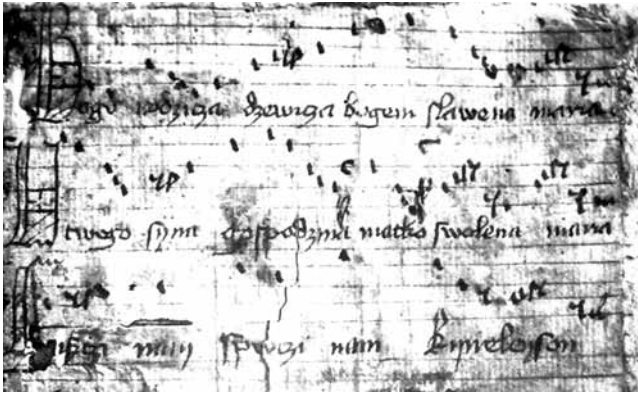 rodzicza dzewicza bogem slawena maria
twego syna gospodzina matko swolena maria
nam spwczi nam Kyrieleyson